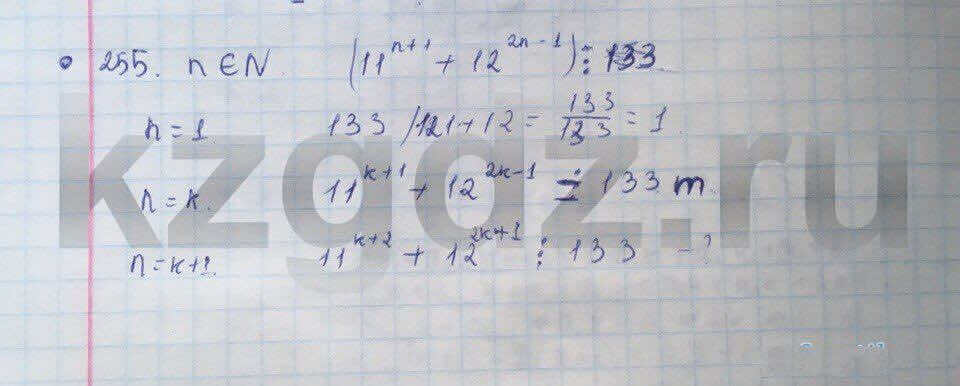 255. n ∈ N (11^{n+1} + 12^{2n-1}) ⋮ 133
n = 1. 133 / 121 + 12 = \frac{133}{133} = 1.
n = k. 11^{k+1} + 12^{2k-1} = 133 m.
n = k+1. 11^{k+2} + 12^{2k+1} ⋮ 133 - ?
kzgdz.ru